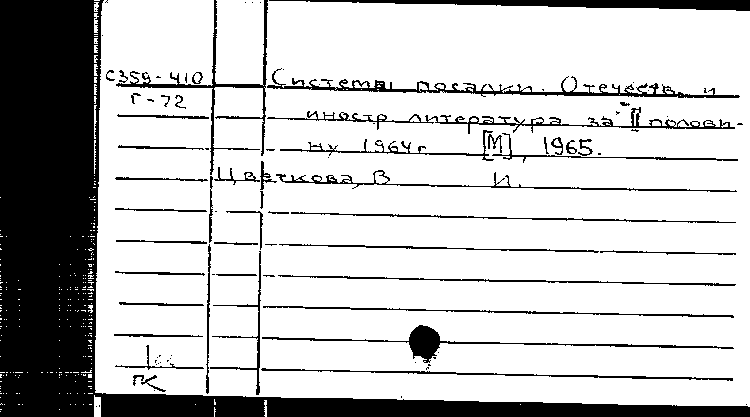 С359-410 Системы посадки. Отечеств. и
Г-72
иностр. литература за II полови-
ну 1964г. [М], 1965.
Цветкова, В И.
ГК